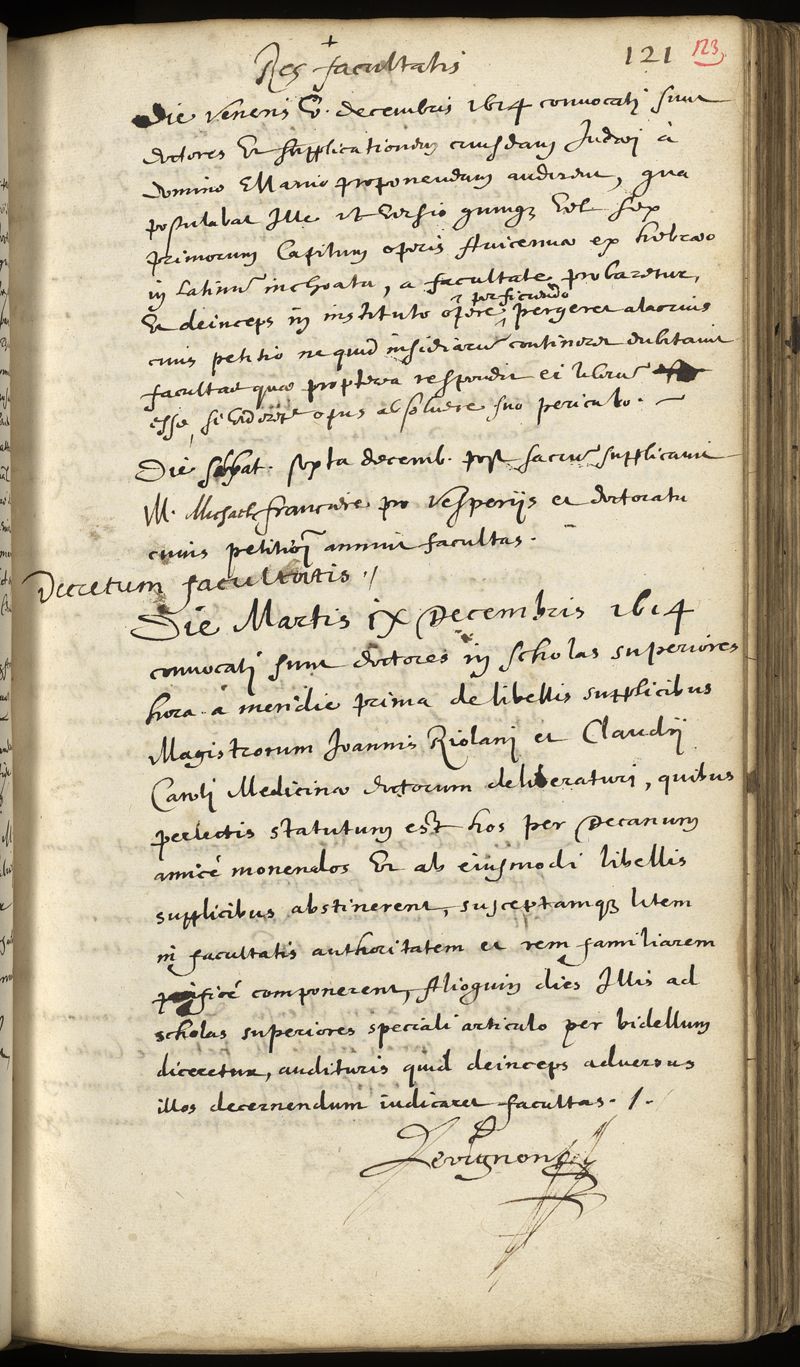 Res facultatis
121 123
Die Veneris V. decembris 1614 convocati sunt
doctores et supplicationem cuiusdam Judæi à
domino proponendam audirent, qua
postulabat Ille ut versio quinq; vel sex
primorum Capitum operis Avicennæ ex hebræo
in Latinū inchoata, a facultate probaretur,
Et deinceps in instituto opere perficiendo pergeret alacrius
cuius petitio ne quid insidiarū contineret dubitavit
facultas quæ propterea respondit ei liberū
esse, si videretur opus absolvere suo periculo.
Die Sabbat. sexta decemb. post sacrū supplicavit
M. Michael pro Vesperijs et doctoratu
cuius petitioni annuit facultas.
Decretum facultatis
Die Martis ix Decembris 1614
convocati sunt doctores in scholas superiores
hora a meridie prima de libellis supplicibus
Magistrorum Joannis Riolani et Claudij
Caroli Medicinæ doctorum deliberaturi, quibus
perlectis statutum est hos per Decanum
amicè monendos Et ab eiusmodi libellis
supplicibus abstinerent, susceptamq; litem
in facultatis authoritatem et rem familiarem
componerent, Alioquin dies Illis ad
scholas superiores speciali articulo per bidellum
diceretur, audituris quid deinceps adversus
illos decernendum iudicaret facultas.